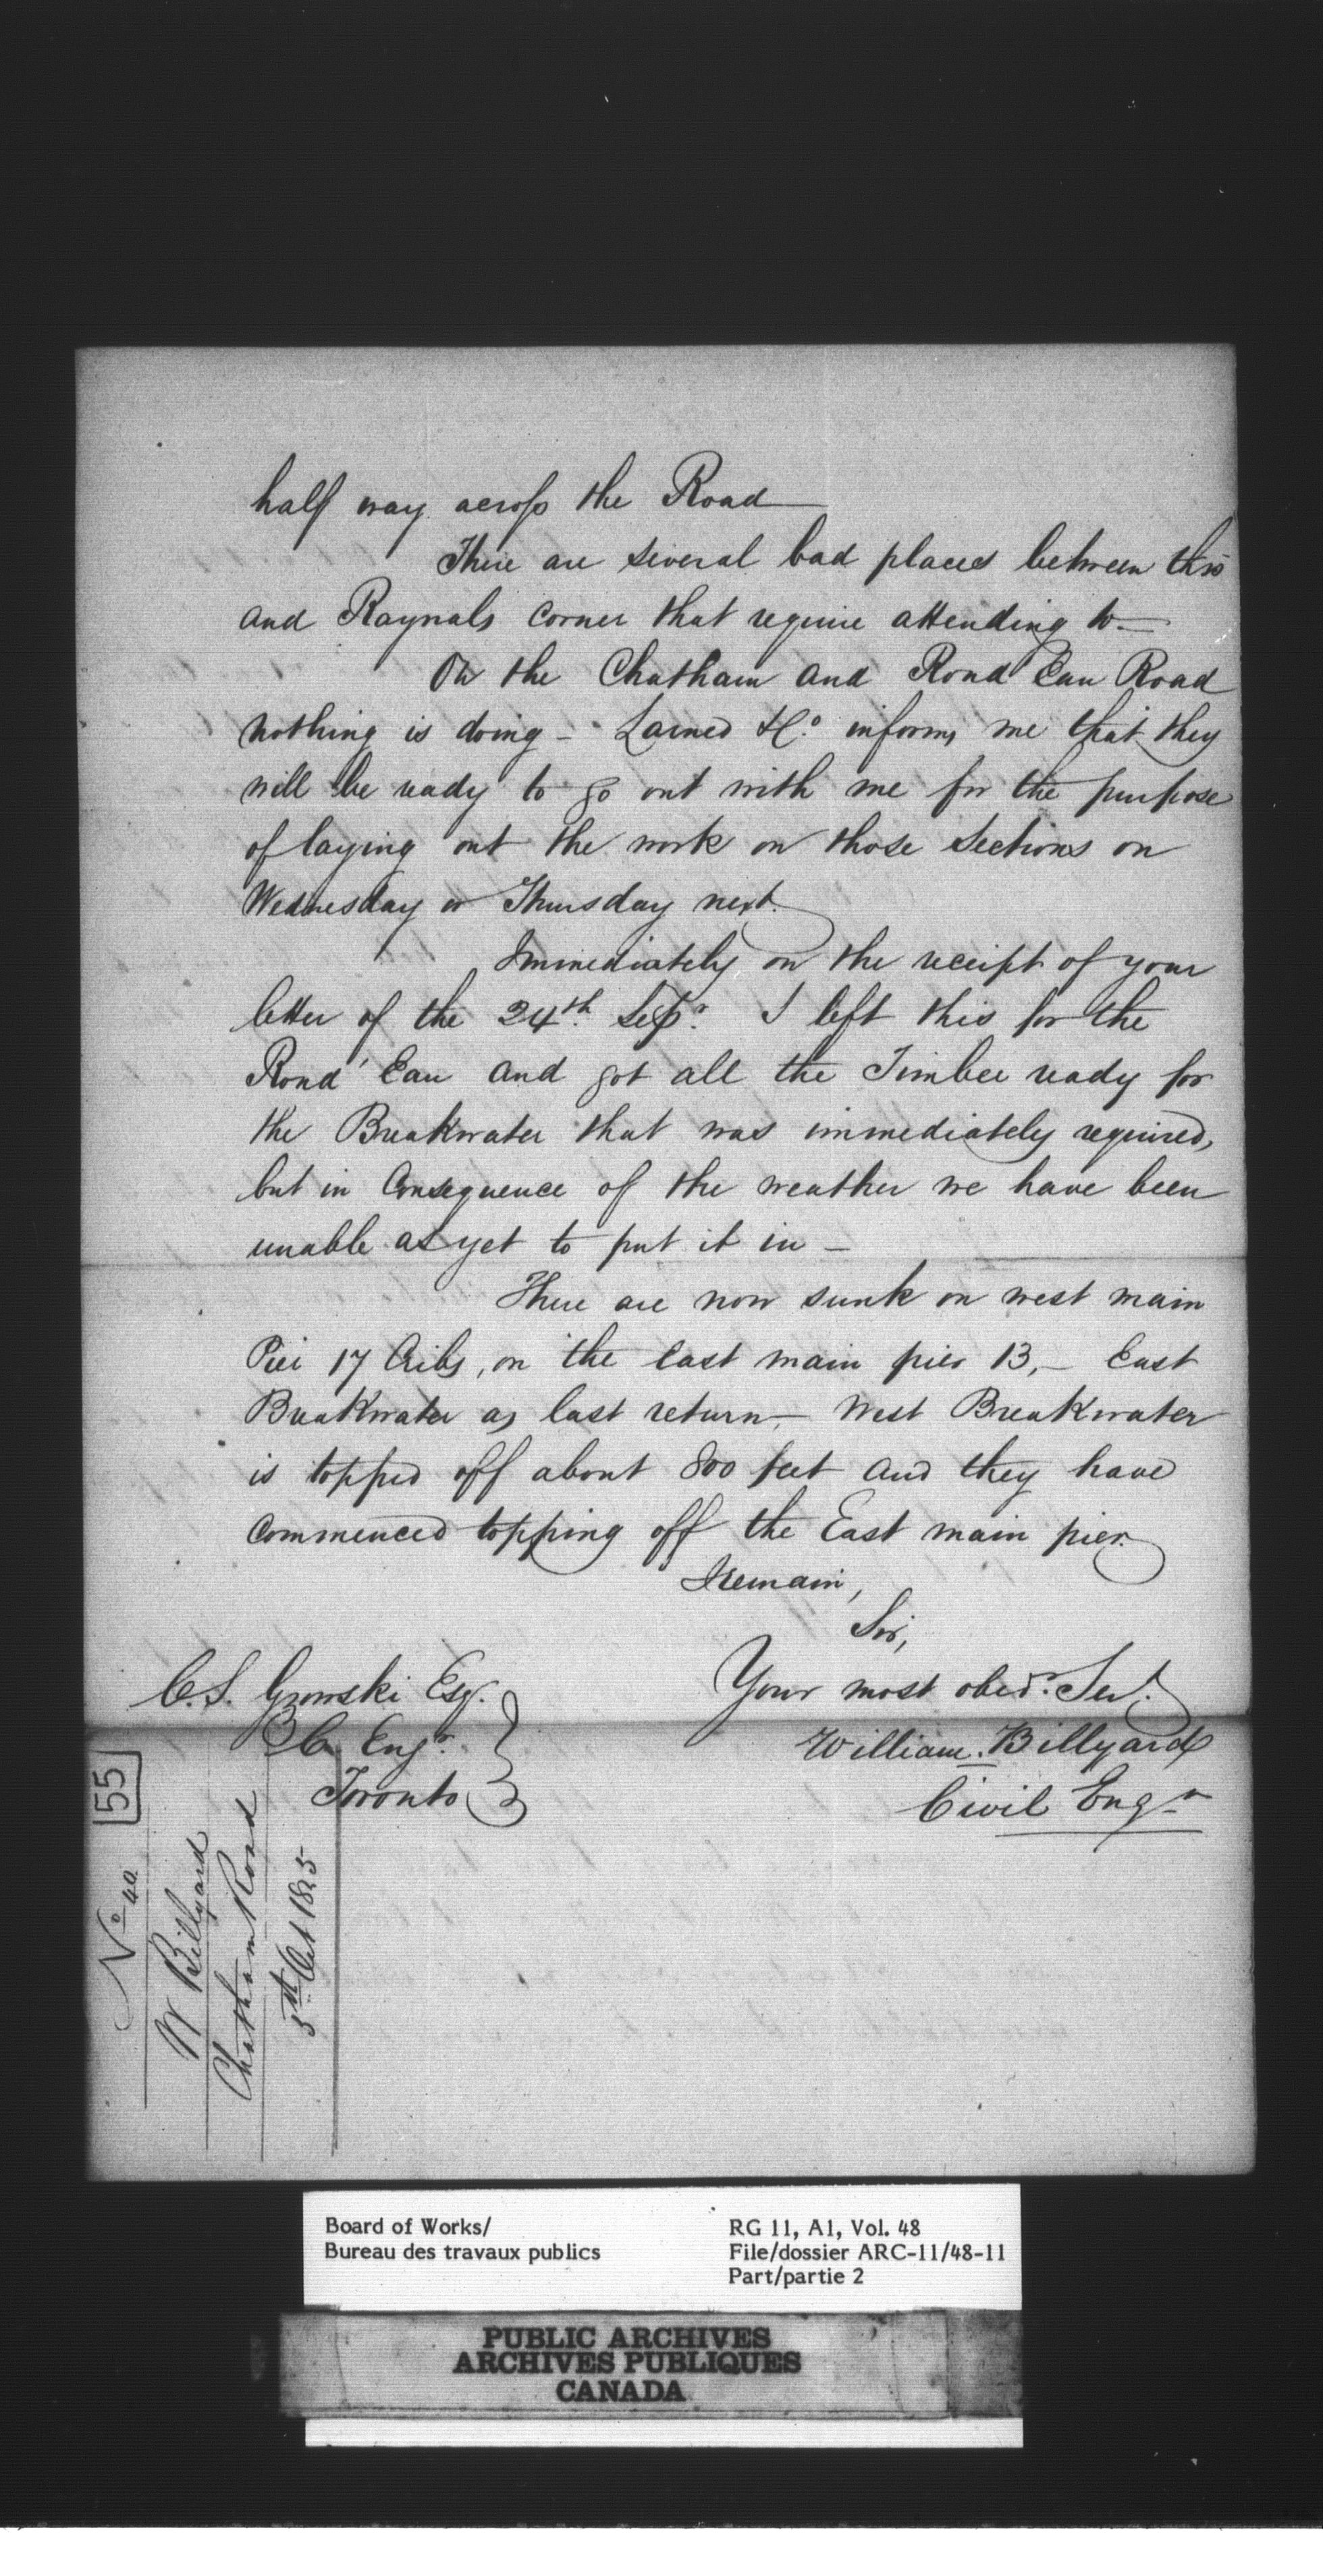 half way across the Road —
There are several bad places between this
and Raynals corner that require attending to —
On the Chatham and Rond Eau Road
nothing is doing — Larned & Co. informs me that they
will be ready to go out with me for the purpose
of laying out the work on those Sections on
Wednesday or Thursday next.
Immediately on the receipt of your
letter of the 24th. Sepr. I left this for the
Rond' Eau and got all the Timber ready for
the Breakwater that was immediately required,
but in Consequence of the weather we have been
unable as yet to put it in —
There are now sunk on west main
Pier 17 Cribs, on the East main pier 13, — East
Breakwater as last return, — West Breakwater
is topped off about 800 feet and they have
commenced topping off the East main pier.
I remain,
Sir,
Your most obedt. Sert.
William. Billyard
Civil Engr
C. S. Gzowski Esq.
C. Engr.
Toronto
55
No 40
W Billyard
Chatham Road
5th Oct 1845
Board of Works/
Bureau des travaux publics
RG 11, A1, Vol. 48
File/dossier ARC-11/48-11
Part/partie 2
PUBLIC ARCHIVES
ARCHIVES PUBLIQUES
CANADA